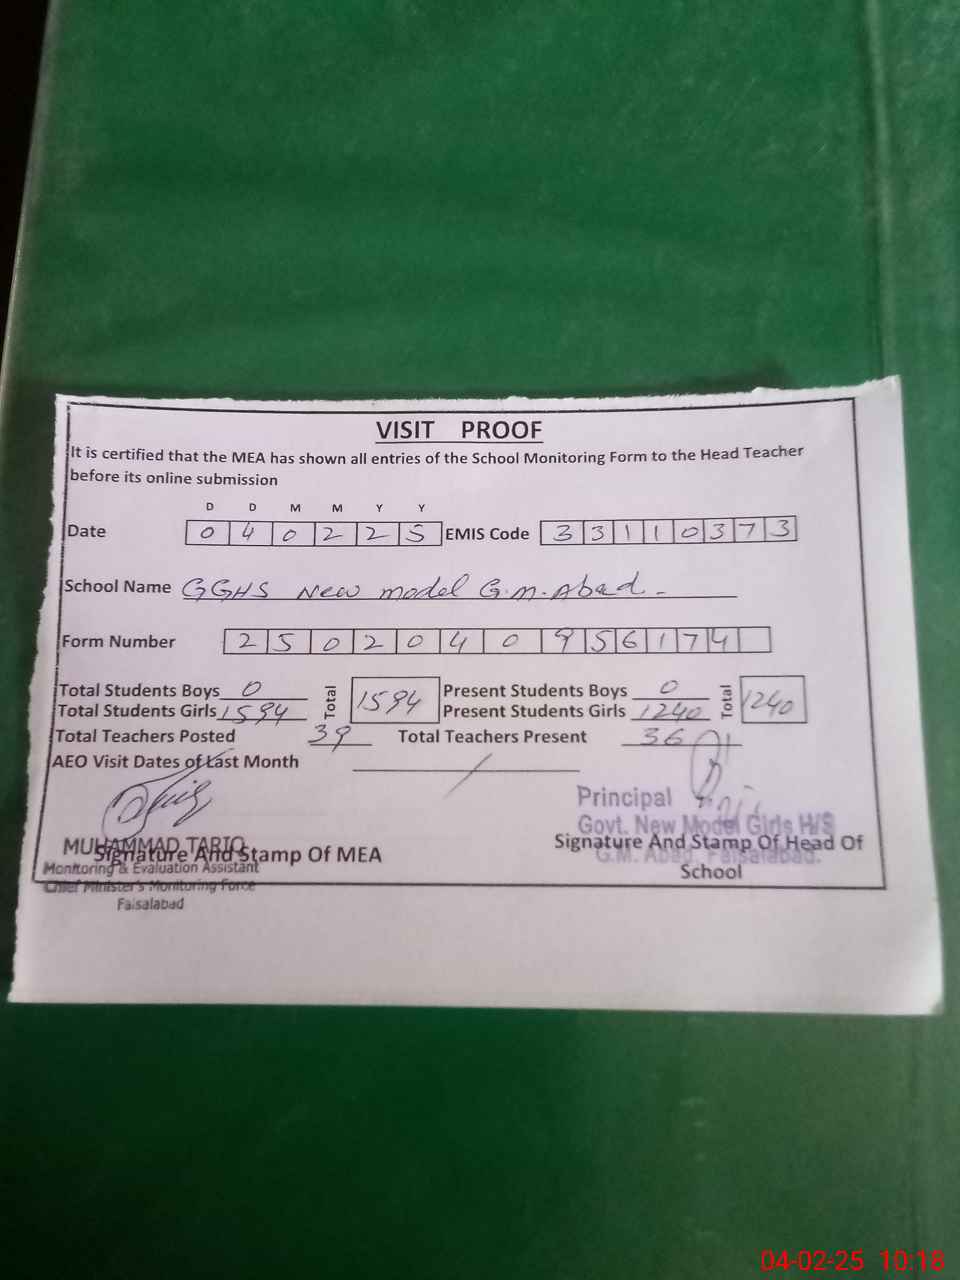 VISIT PROOF
It is certified that the MEA has shown all entries of the School Monitoring Form to the Head Teacher
before its online submission
D D M M Y Y
Date 0 4 0 2 2 5 EMIS Code 3 3 1 1 0 3 7 3
School Name GGHS New model G.M.Abad.
Form Number 2 5 0 2 0 4 0 9 5 6 1 7 4
Total Students Boys 0 Total 1594 Present Students Boys 0 Total 1240
Total Students Girls 1594 Present Students Girls 1240
Total Teachers Posted 39 Total Teachers Present 36
AEO Visit Dates of Last Month
Principal
Govt. New Model Girls H/S
G.M. Abad, Faisalabad.
Signature And Stamp Of Head Of
School
MUHAMMAD TARIQ
Signature And Stamp Of MEA
Monitoring & Evaluation Assistant
Chief Minister's Monitoring Force
Faisalabad
04-02-25 10:18